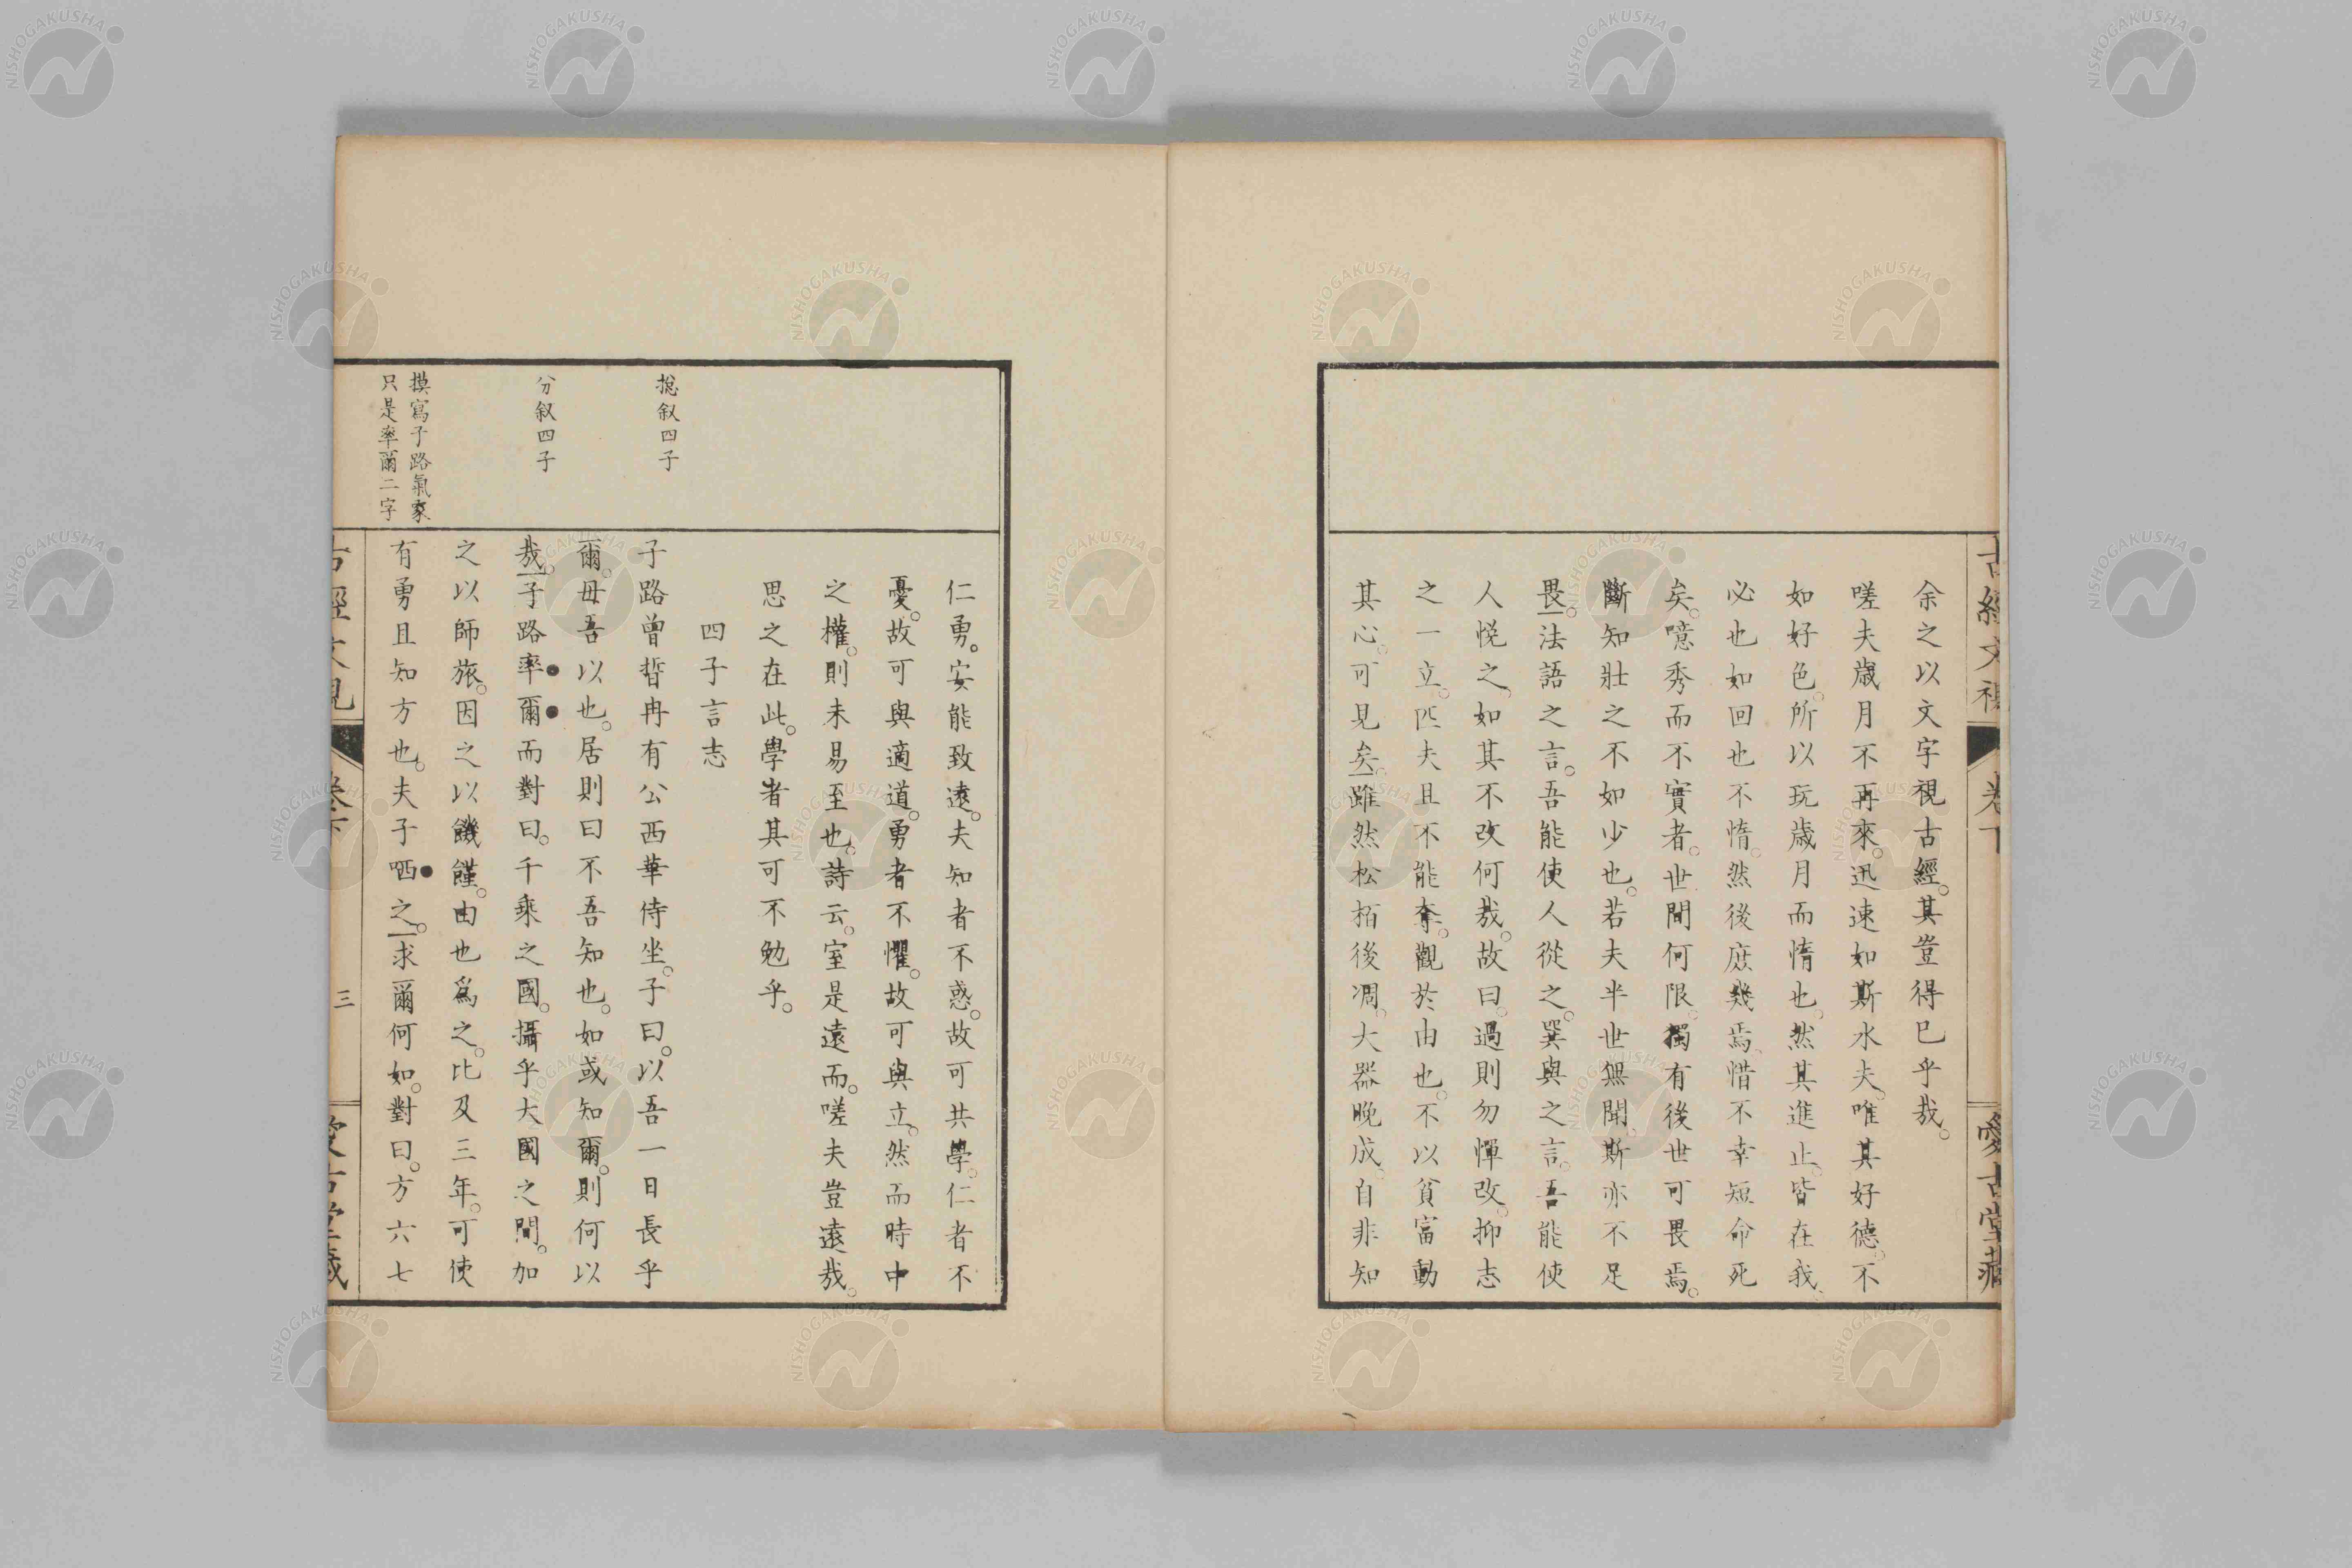 余之以文字視古經。其豈得已乎哉。
嗟夫歲月不再來。迅速如斯水夫。唯其好德。不
如好色。所以玩歲月而惰也。然其進止。皆在我。
必也如回也不惰。然後庶幾焉。惜不幸短命死
矣。噫秀而不實者。世間何限。獨有後世可畏焉。
斷知壯之不如少也。若夫半世無聞。斯亦不足
畏。法語之言。吾能使人從之。巽與之言。吾能使
人悅之。如其不改何哉。故曰。過則勿憚改。抑志
之一立。匹夫且不能奪。觀於由也。不以貧富動
其心。可見矣。雖然松栢後凋。大器晚成。自非知
仁勇。安能致遠。夫知者不惑。故可共學。仁者不
憂。故可與適道。勇者不懼。故可與立。然而時中
之權。則未易至也。詩云。室是遠而。嗟夫豈遠哉。
思之在此。學者其可不勉乎。
四子言志
揔叙四子
子路曾晳冉有公西華侍坐。子曰。以吾一日長乎
爾。毋吾以也。居則曰不吾知也。如或知爾。則何以
分叙四子
哉。子路率爾而對曰。千乘之國。攝乎大國之間。加
之以師旅。因之以饑饉。由也為之。比及三年。可使
摸寫子路氣象
只是率爾二字
有勇且知方也。夫子哂之。求爾何如。對曰。方六七
卷下
三
NISHOGAKUSHA